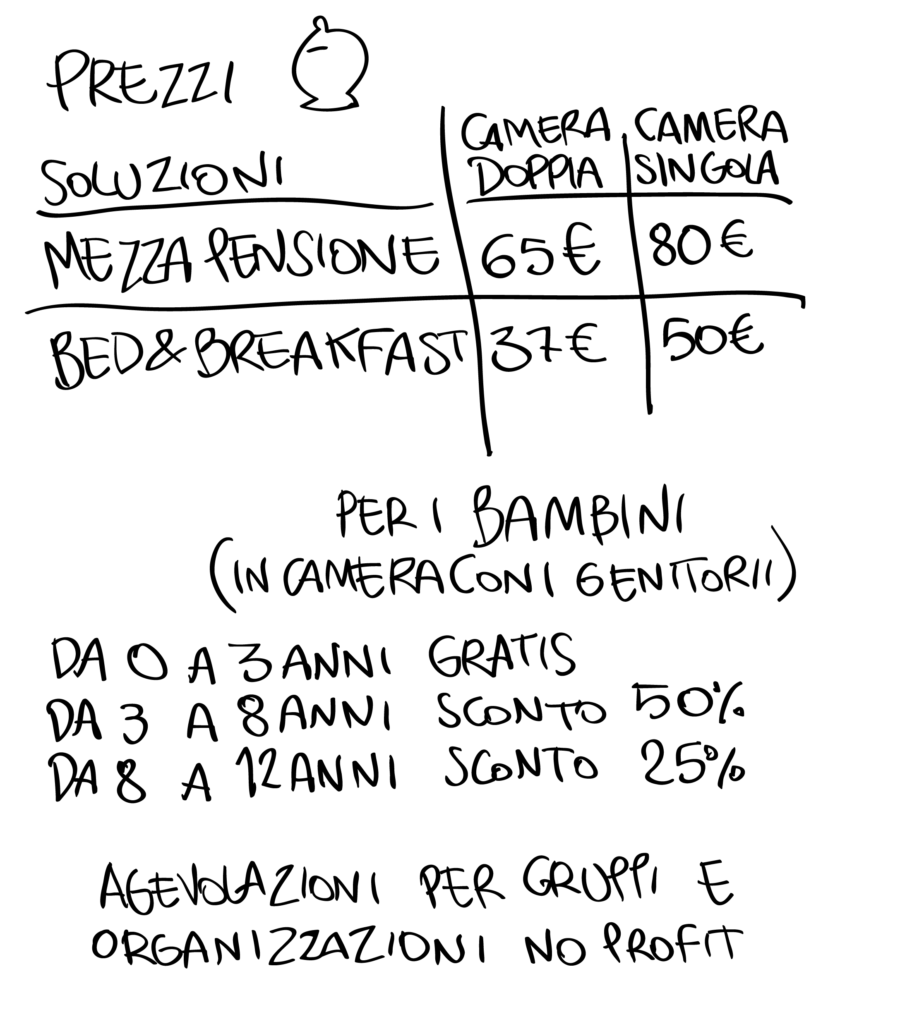 PREZZI
SOLUZIONI CAMERA DOPPIA CAMERA SINGOLA
MEZZA PENSIONE 65€ 80€
BED&BREAKFAST 37€ 50€
PER I BAMBINI
(IN CAMERA CON I GENITORII)
DA 0 A 3 ANNI GRATIS
DA 3 A 8 ANNI SCONTO 50%
DA 8 A 12 ANNI SCONTO 25%
AGEVOLAZIONI PER GRUPPI E
ORGANIZZAZIONI NO PROFIT